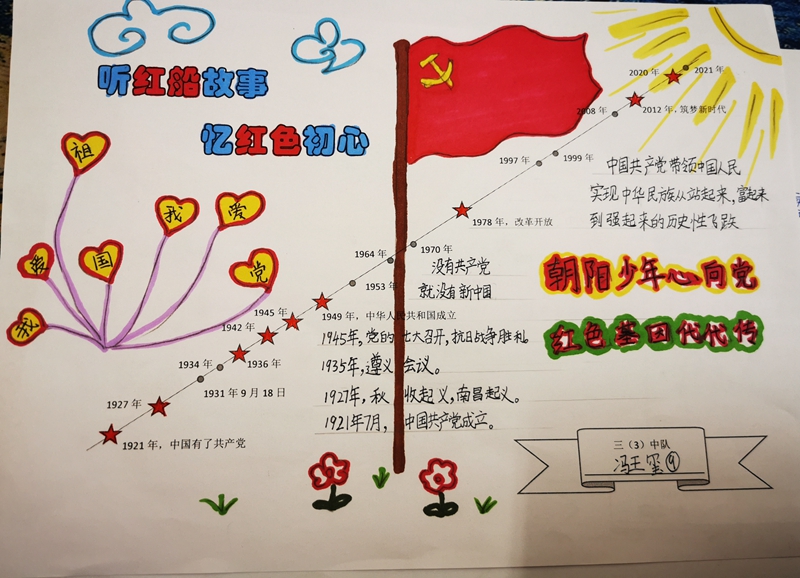 听红船故事
忆红色初心
祖
我
爱
爱
国
党
我
2021年
2020年
2012年，筑梦新时代
2008年
1999年
1997年
1978年，改革开放
1970年
1964年
1953年
1949年，中华人民共和国成立
1945年
1942年
1936年
1934年
1931年9月18日
1927年
1921年，中国有了共产党
中国共产党带领中国人民
实现中华民族从站起来，富起来
到强起来的历史性飞跃
没有共产党
就没有新中国
朝阳少年心向党
红色基因代代传
1945年，党的七大召开，抗日战争胜利。
1935年，遵义会议。
1927年，秋收起义，南昌起义。
1921年7月，中国共产党成立。
三（3）中队
冯王玺⑨